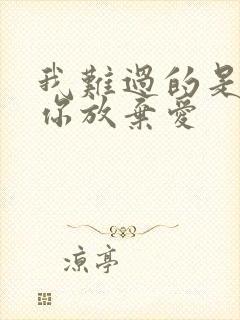 我難過的是
你放棄愛
凉亭